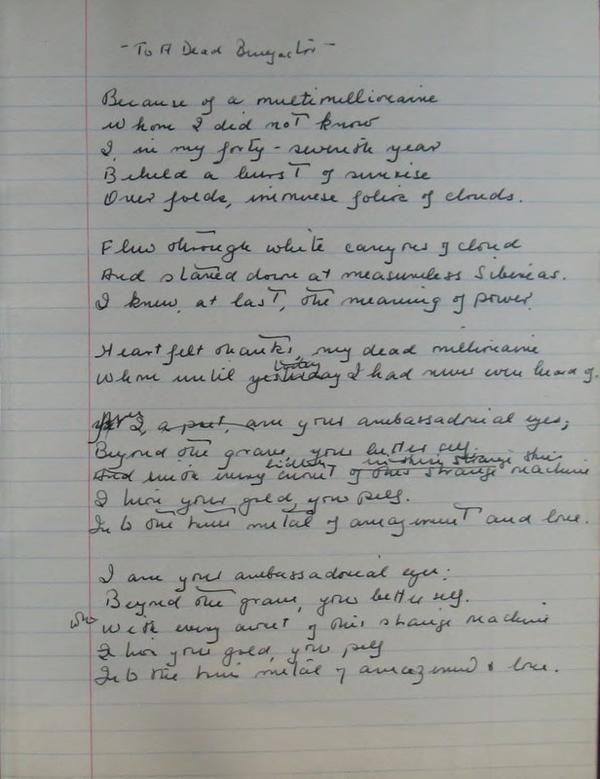 - To A Dead Benefactor -
Because of a multimillionaire
Whom I did not know
I, in my forty-seventh year
Beheld a burst of sunrise
Over folds, immense folds of clouds.
Flew through white canyons of cloud
And stared down at measureless Siberias.
I knew, at last, the meaning of power.
Heartfelt thanks, my dead millionaire
today
Whom until yesterday I had never even heard of.
I, a poet, am your ambassadorial eyes;
Beyond the grave, your better self.
in this strange
And with every of this strange machine
I turn your gold, your pelf.
Into the true metal of amazement and love.
I am your ambassadorial eyes:
Beyond the grave, your better self.
who
With every of this strange machine
I turn your gold, your pelf
Into the true metal of amazement & love.